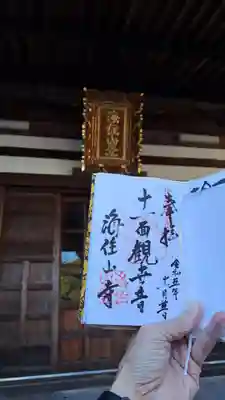 海住山寺
奉拝
令和五年
十一月廿五日
十一面観世音
海住山寺